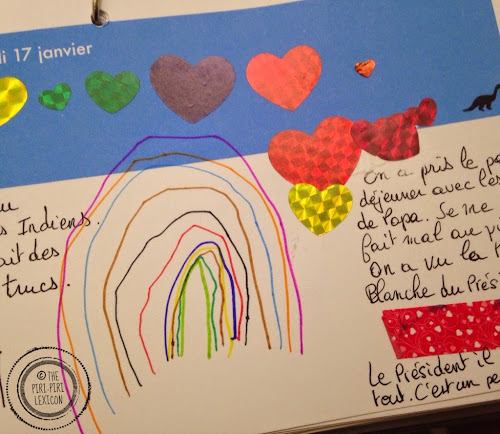 di 17 janvier
s Indiens.
ait des
trucs.
On a pris le pe
déjeuner avec l'es
de Papa. Je me
fait mal au
On a vu la
Blanche du Prés
Le Président il
tout. C'est un pe
© THE
PIRI-PIRI
LEXICON